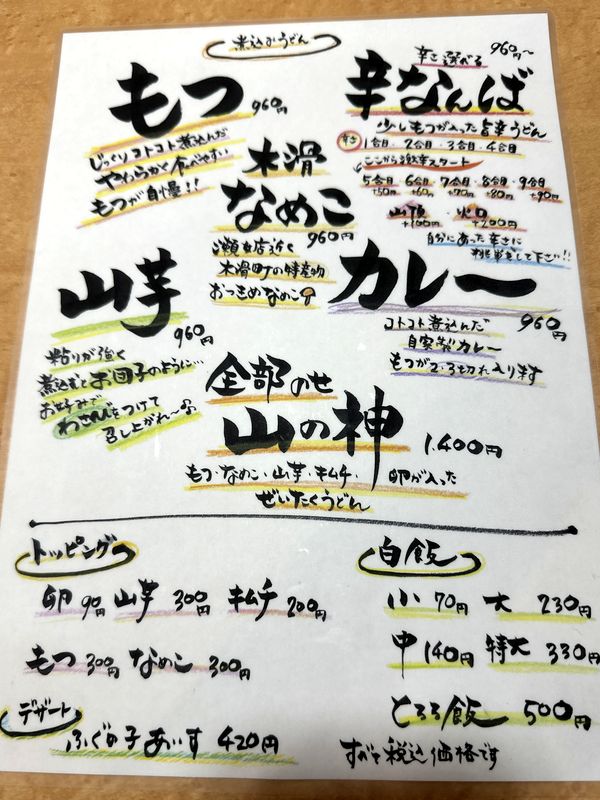 煮込みうどん
もつ 960円
じっくりコトコト煮込んだ
やわらかく食べやすい
もつが自慢!!
辛さ選べる 960円〜
辛なんば
少しもつが入った旨辛うどん
辛さ 1合目・2合目・3合目・4合目
ここから激辛スタート
5合目・6合目・7合目・8合目・9合目
+50円 +60円 +70円 +80円 +90円
山頂 火口
+100円 +200円
自分にあった辛さに
挑戦をして下さい!!
木滑
なめこ
960円
瀬女店近く
木滑町の特産物
おっきめなめこ
山芋
960円
粘りが強く
煮込むとお団子のように…
お好みで
わさびをつけて
召し上がれ〜♪
カレー
960円
コトコト煮込んだ
自家製カレー
もつが2・3切れ入ります
全部のせ
山の神 1.400円
もつ・なめこ・山芋・キムチ・卵が入った
ぜいたくうどん
トッピング
卵 90円 山芋 300円 キムチ 200円
もつ 300円 なめこ 300円
デザート
ふぐの子あいす 420円
白飯
小 70円 大 230円
中 140円 特大 330円
とろろ飯 500円
すべて税込価格です